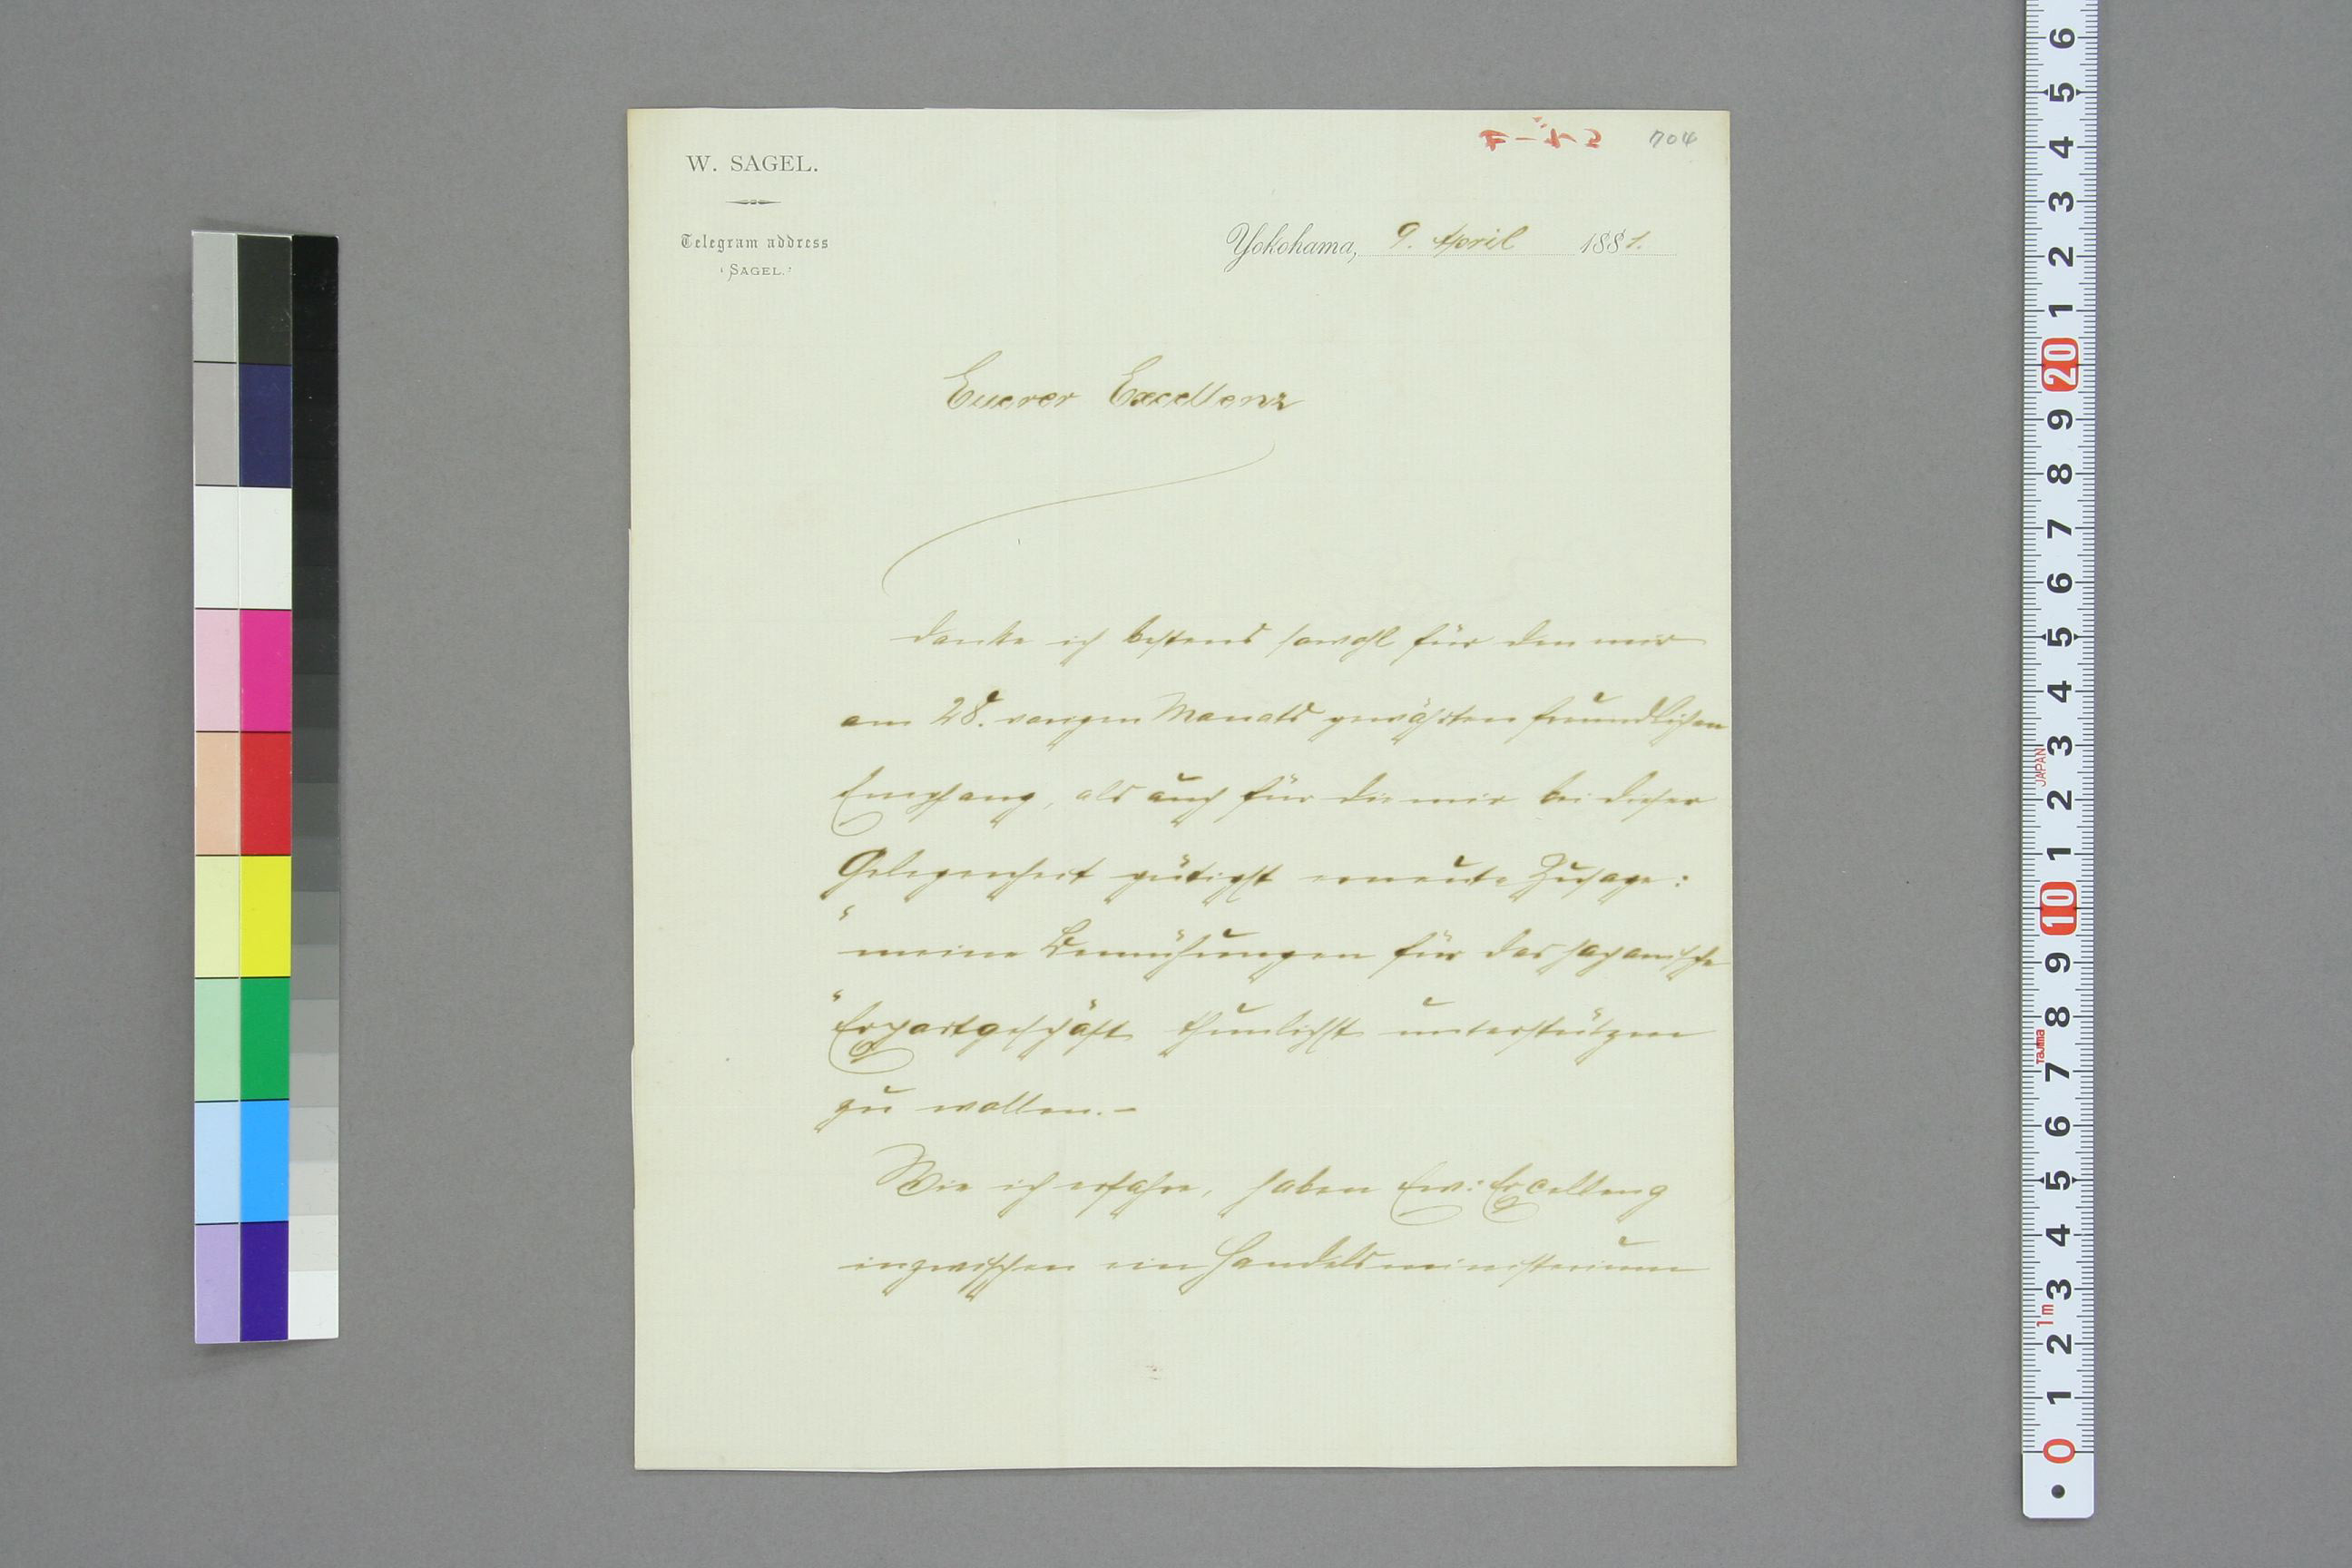 W. SAGEL.
Telegram address
"SAGEL."
704
Yokohama, 9. April 1881.
Euerer Excellenz
danke ich bestens sowohl für den mir
am 28. vorigen Monats gewährten freundlichen
Empfang, als auch für die mir bei dieser
Gelegenheit gütigst erneute Zusage:
"meine Bemühungen für das japanische
"Exportgeschäft thunlichst unterstützen
zu wollen.-
Wie ich erfahre, haben Ew: Excellenz
inzwischen ein Handelsministerium
6
5
4
3
2
1
20
9
8
7
6
5
4
3
JAPAN
2
1
10
9
8
Tajima
7
6
5
4
3
1m
2
1
0